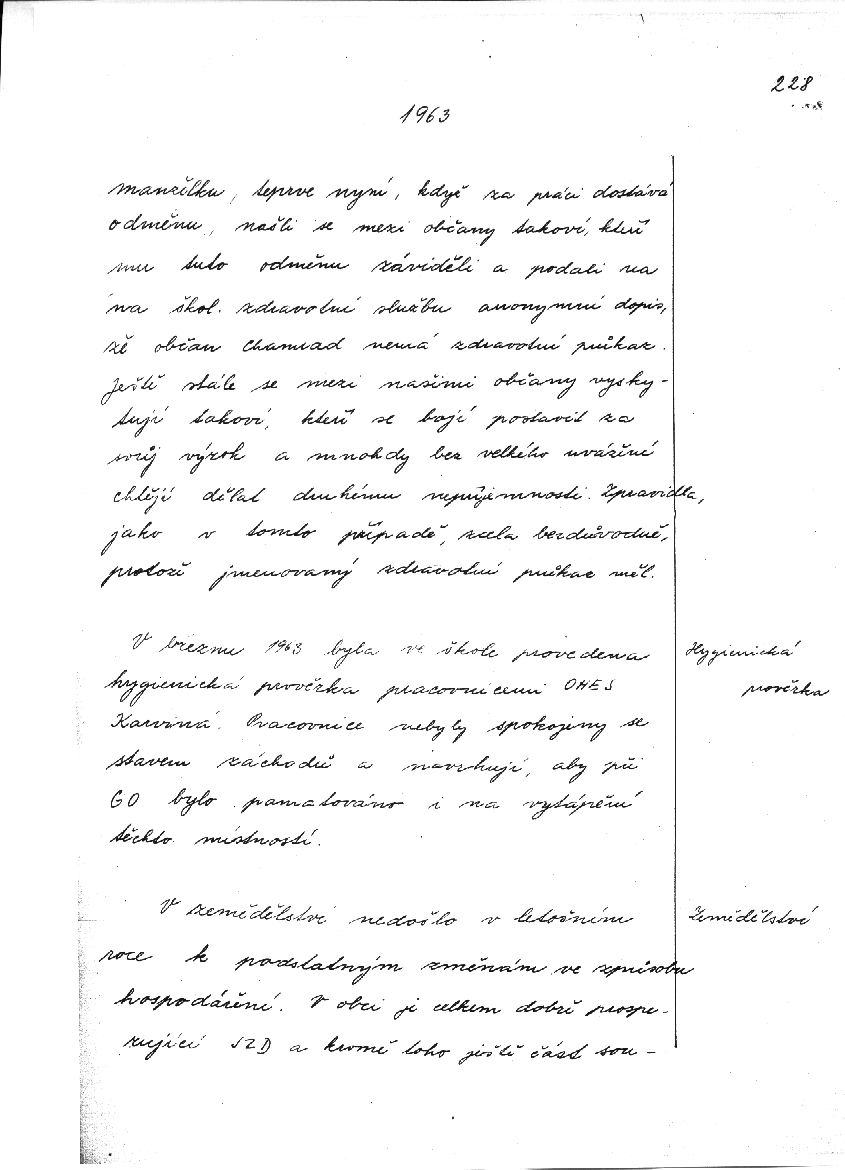 228
1963
manželku, teprve nyní, když za práci dostává
odměnu, našli se mezi občany takoví, kteří
mu tuto odměnu záviděli a podali na
na škol. zdravotní službu anonymní dopis,
že občan Chamrad nemá zdravotní průkaz.
Ještě stále se mezi našimi občany vysky-
tují takoví, kteří se bojí postavit za
svůj výrok a mnohdy bez velkého uvážení
chtějí dělat druhému nepříjemnosti. Zpravidla,
jako v tomto případě, zcela bezdůvodně,
protože jmenovaný zdravotní průkaz měl.
V březnu 1963 byla ve škole provedena
Hygienická
hygienická prověrka pracovnicemi OHES
prověrka
Karviná. Pracovnice nebyly spokojeny se
stavem záchodů a navrhují, aby při
GO bylo pamatováno i na vytápění
těchto místností.
V zemědělství nedošlo v letošním
Zemědělství
roce k podstatným změnám ve způsobu
hospodaření. V obci je celkem dobře prospe-
rující JZD a kromě toho ještě část sou-